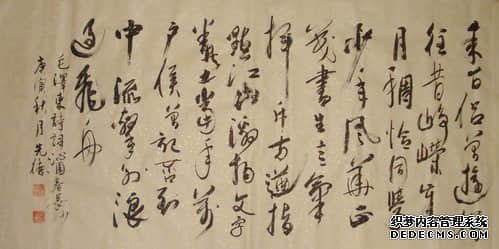 来百侣曾遊
往昔峥嵘岁
月稠恰同学
少年风华正
茂书生意气
挥斥方遒指
點江山激扬文字
粪土当年万
户侯曾记否到
中流击水浪
遏飞舟
毛澤東詩詞沁园春長沙
庚寅秋月先德
织梦内容管理系统
DEDECMS.COM